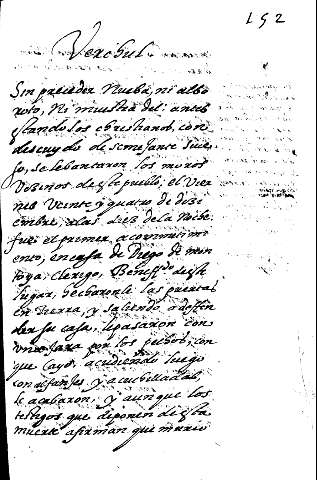 152
Verchul
Sin preceder nueba, ni albo
roto, Ni muestra del: antes
estando los christianos, con
descuydo de semejante suce
so, se lebantaron los moros
Vezinos de este pueblo; el Vier
nes Veinte y quatro de dizi
embre, a las diez de la noche
fue el primer, acometimi
ento, en casa de Diego de mon
toya: clerigo, Beneffdo deste
lugar, hecharonle las puertas
en tierra, y saliendo a deffen
der su casa, le pasaron con
una jara por los pechos, con
que cayó, acudiendo luego
con alfanjes y a cuchilladas,
le acabaron, y aunque los
testigos que deponen de esta
muerte afirman que murio